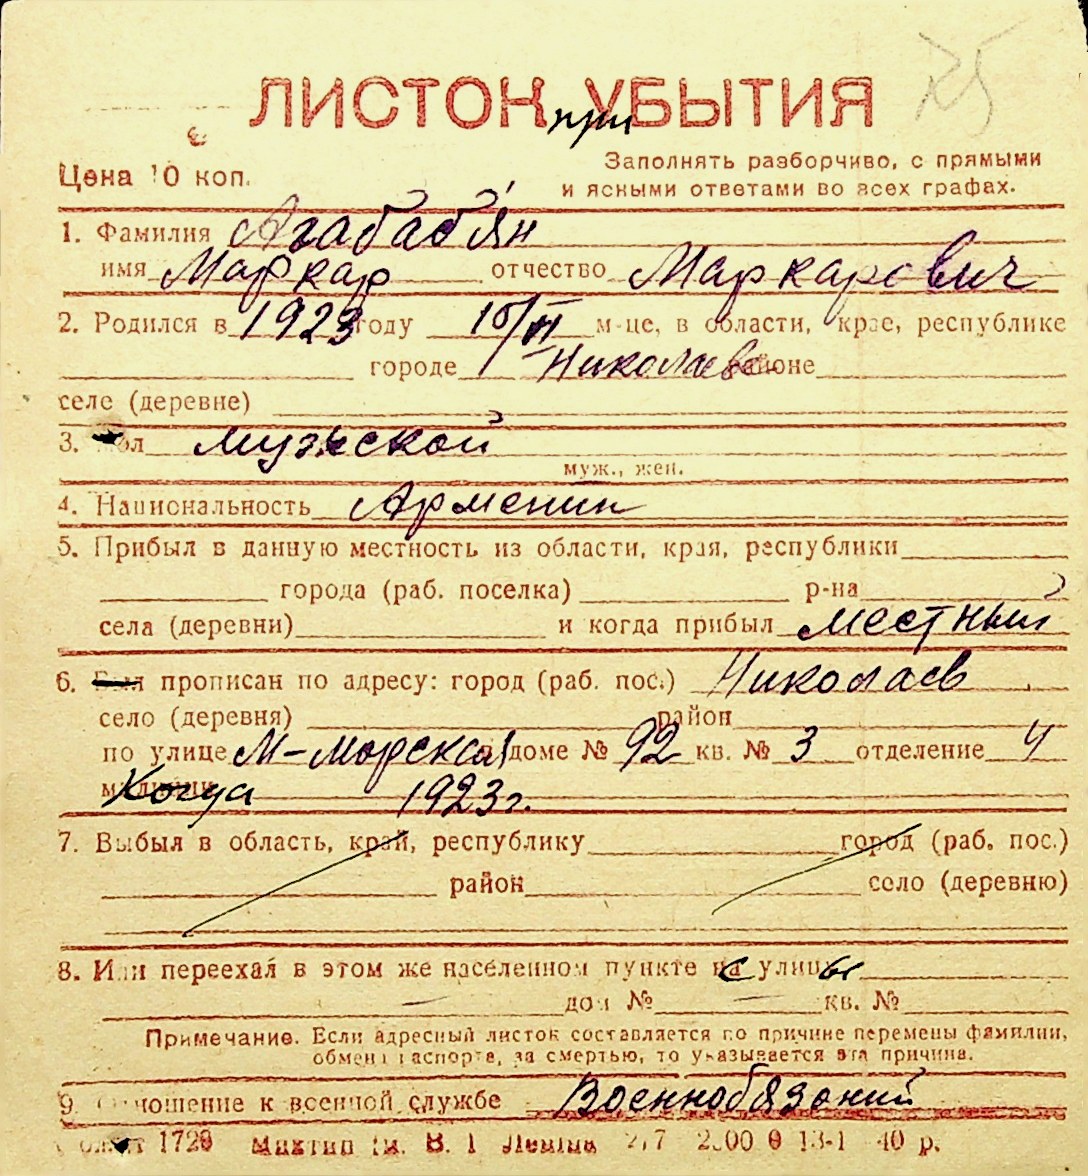 ЛИСТОК при УБЫТИЯ
Цена 10 коп.
Заполнять разборчиво, с прямыми
и ясными ответами во всех графах.
1. Фамилия Агабабян
имя Маркар отчество Маркарович
2. Родился в 1923 году 15/VI м-це, в области, крае, республике
городе Николаеве районе
селе (деревне)
3. Пол мужской
муж., жен.
4. Национальность Арменин
5. Прибыл в данную местность из области, края, республики
города (раб. поселка) р-на
села (деревни) и когда прибыл местный
6. Был прописан по адресу: город (раб. пос.) Николаев
село (деревня) район
по улице М-Морская доме № 92 кв. № 3 отделение 4
милиции Когда 1923 г.
7. Выбыл в область, край, республику город (раб. пос.)
район село (деревню)
8. Или переехал в этом же населенном пункте с улицы
дом № кв. №
Примечание. Если адресный листок составляется по причине перемены фамилии,
обмена паспорта, за смертью, то указывается эта причина.
9. Отношение к военной службе Военнобязоний
1729 им. В. І Леніна 40 р.